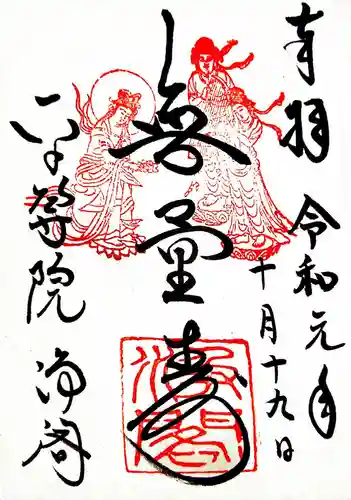 奉拝
令和元年
十月十九日
無量寿
平等院 浄閣